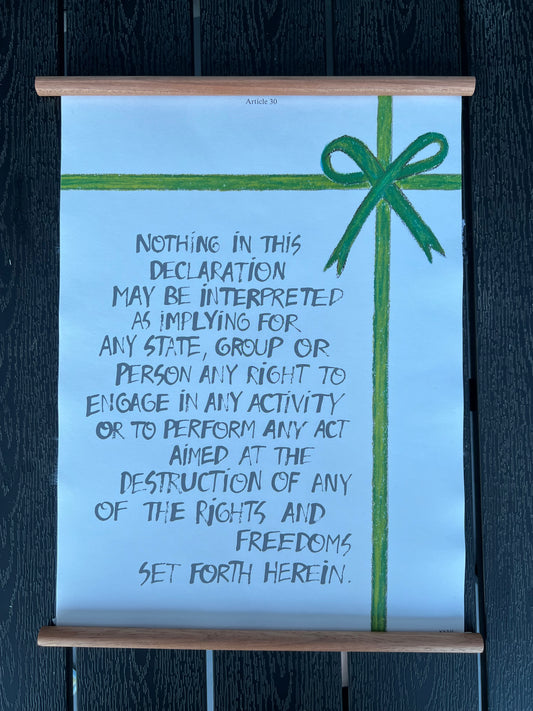 Article 30
NOTHING IN THIS
DECLARATION
MAY BE INTERPRETED
AS IMPLYING FOR
ANY STATE, GROUP OR
PERSON ANY RIGHT TO
ENGAGE IN ANY ACTIVITY
OR TO PERFORM ANY ACT
AIMED AT THE
DESTRUCTION OF ANY
OF THE RIGHTS AND
FREEDOMS
SET FORTH HEREIN.